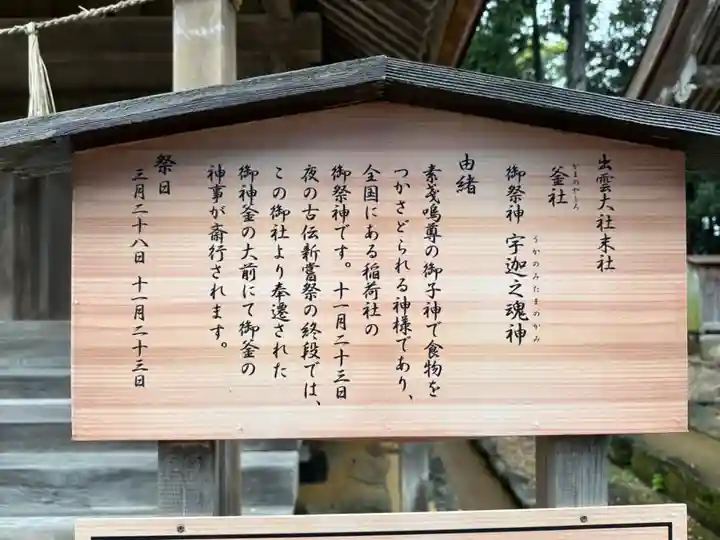 出雲大社末社
かまのやしろ
釜社
うかのみたまのかみ
御祭神 宇迦之魂神
由緒
素戔嗚尊の御子神で食物を
つかさどられる神様であり、
全国にある稲荷社の
御祭神です。十一月二十三日
夜の古伝新嘗祭の終段では、
この御社より奉遷された
御神釜の大前にて御釜の
神事が斎行されます。
祭日
三月二十八日 十一月二十三日